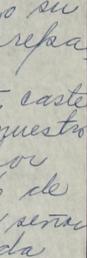 o su
repa
caste
nuestro
or
de
señor
da